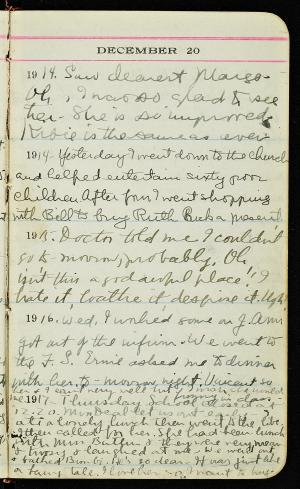 DECEMBER 20
1914. Saw dearest Margo.
Oh, I was so glad to see
her. She is so improved.
is the same as ever
1914. Yesterday I went down to the Church
and helped entertain sixty poor
children. After fun I went shopping
with Bell to buy Ruth a present
191 . Doctor told me I couldn't
go to morrow, probably. Oh,
isn't this a god awful place! I
hate it, loathe it, despise it. Ugh!
1916. Wed. I worked some on
got out of the infirm. We went to
the F. S. Ernie asked me to dinner
with her to-morrow night.
1917. Thursday. School
12.20. let us out
at a lovely lunch then went to the
then called for her. She had been lunch
with Miss Butler &
& laughed at me. We went out
so dear. It was just like
a fairy tale. I love her so. I want to